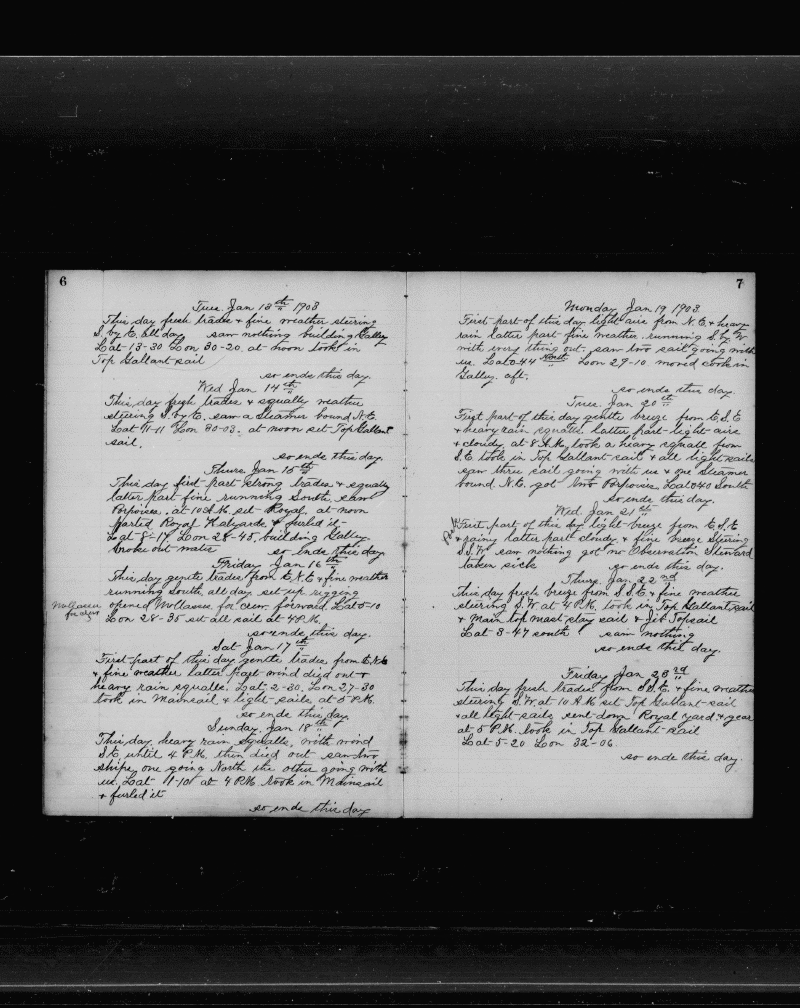 6
Tues. Jan 13th 1903
This day fresh trades & fine weather steering
S. by E. all day saw nothing building Galley
Lat 13-30 Lon 30-20. at noon took in
Top Gallant sail
so ends this day.
Wed Jan 14th
This day fresh trades & squally weather
steering S. by E. saw a Steamer bound N.E.
Lat 11-11 Lon 30-03. at noon set Top Gallant
sail.
so ends this day.
Thurs. Jan 15th
This day first part strong trades & squally
latter part fine running South, shoal
Porpoises. at 10 A.M. set Royal, at noon
parted Royal Halyards & furled it.
Lat 8-17 Lon 28-45. building Galley.
broke out water so ends this day
Friday Jan 16th
This day gentle trades from E.N.E & fine weather
running South all day set up rigging
Mollasses
for crew
opened Mollasses for crew forward. Lat 5-10
Lon 28-35 set all sail at 4 P.M.
so ends this day.
Sat Jan 17th
First part of this day gentle trades from E.N.E
& fine weather latter part wind died out &
heavy rain squalls. Lat 2-30. Lon 27-30
took in Mainsail & light sails at 5 P.M.
so ends this day
Sunday. Jan 18th
This day heavy rain squalls, with wind
S.E. until 4 P.M. then died out saw two
ships, one going North the other going with
us. Lat 1-10 at 4 P.M. took in Mainsail
& furled it
so ends this day
7
Monday Jan 19 1903.
First part of this day light airs from N.E. & heavy
rain latter part fine weather, running S. by W
with every thing out. saw two sail going with
us. Lat 0.44 North Lon 29-10 moved cook in
Galley. aft.
so ends this day.
Tues. Jan 20th
First part of this day gentle breeze from E.S.E
& heavy rain squalls latter part light airs
& cloudy. at 8 A.M. took a heavy squall from
S.E. took in Top Gallant sail & all light sails
saw three sail going with us & one Steamer
bound N.E. got two Porpoises. Lat 0.40 South
so ends this day.
Wed Jan 21st
First part of this day light breeze from E.S.E
& rainy latter part cloudy & fine breeze Steering
S.S.W. saw nothing got no Observation Steward
taken sick so ends this day.
Thurs. Jan. 22nd
This day fresh breeze from S.S.E. & fine weather
steering S.W. at 4 P.M. took in Top Gallant sail
& Main top mast stay sail & Jib Topsail
Lat 3-47 south saw nothing
so ends this day.
Friday Jan 23rd
This day fresh trades from S.S.E. & fine weather
steering S.W. at 10 A.M. set Top Gallant sail
& all light sails sent down Royal yard & gear
at 5 P.M. took in Top Gallant sail
Lat 5-20 Lon 32-06
so ends this day.